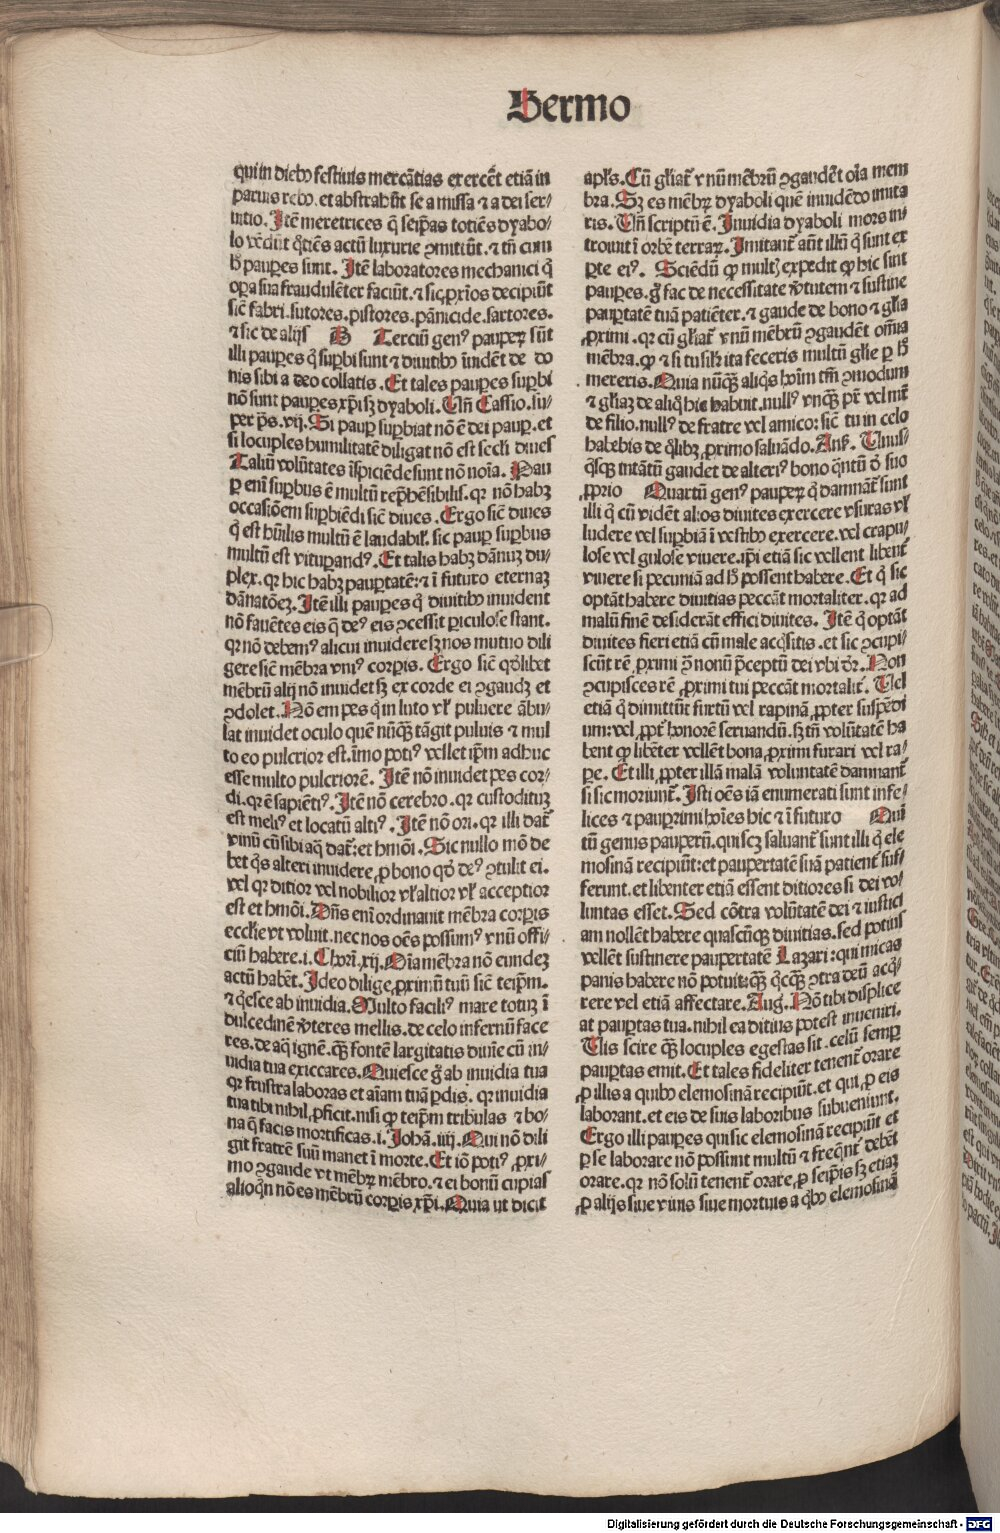 Sermo
qui in dieb9 festiuis mercātias exercēt etiā in
paruis reb9. et abstrahūt se a missa ⁊ a dei ser⸗
uitio. Itē meretrices q̄ seip̄as totiēs dyabo⸗
lo vēdūt q̄tiēs actū luxurie ꝯmittūt. ⁊ tn̄ cum
h̄ paupes sunt. Itē laboratores mechanici q̇
oꝑa sua fraudulēter faciūt. ⁊ sic ꝓxīos decipiūt
sicē fabri. sutores. pistores. pānicide. sartores.
⁊ sic de alijs B Terciū genꝰ pauperꝝ sūt
illi pauꝑes q̇ suꝑbi sunt ⁊ diuitib9 īuidēt de do
nis sibi a deo collatis. Et tales pauꝑes suꝑbi
nō sunt pauꝑes xp̄i sꝫ dyaboli. Vn̄ Cassio. su⸗
per ps̄. vij. Si pauꝑ suꝑbiat nō ē dei pauꝑ. et
si locuples humilitatē diligat nō est secl'i diues
Taliū volūtates īspiciēde sunt nō noīa. Pau
ꝑ eni suꝑbus ē multū rep̄hēsibilis. qꝛ nō habꝫ
occasiōem suꝑbiēdi sicē diues. Ergo sicē diues
q̇ est hūilis multū ē laudabil'. sic pauꝑ suꝑbus
multū est vituꝑandꝰ. Et talis habꝫ dānuꝫ du⸗
plex. qꝛ hic habꝫ pauꝑtatē: ⁊ ī futuro eternaꝫ
dānatōeꝫ. Itē illi pauꝑes q̇ diuitib9 inuident
nō fauētes eis q̄ deꝰ eis ꝯcessit ꝑiculose stant.
qꝛ nō debemꝰ alicui inuidere sꝫ nos mutuo dili
gere sicē mēbra vniꝰ corꝑis. Ergo sicē qd'libet
mēbrū alij nō inuidet sꝫ ex corde ei ꝯgaudꝫ et
ꝯdolet. Nō em pes q̇ in luto vl' puluere ābu⸗
lat inuidet oculo quē nūq̄ꝫ tāgit puluis ⁊ mul
to eo pulcrior est. īmo potiꝰ vellet ip̄m adhuc
esse multo pulcriorē. Itē nō inuidet pes cor⸗
di. qꝛ ē sapiētiꝰ. Itē nō cerebro. qꝛ custodituꝫ
est meliꝰ et locatū altiꝰ. Itē nō ori. qꝛ illi dat̄
vinū cū sibi aq̄ dat̄: et hmōi. Sic nullo mō de
bet q̇s alteri inuidere ꝓ bono qd' deꝰ ꝯtulit ei.
vel qꝛ ditior vel nobilior vl' altior vl' acceptior
est et hmōi. Dn̄s eni ordinauit mēbra corꝑis
eccl'ie vt voluit. nec nos oēs possumꝰ vnū offi⸗
ciū habere. i. Chorī. xij. Oīa mēbra nō eundeꝫ
actū habēt. Ideo dilige ꝓximū tuū sicē teip̄m.
⁊ q̇esce ab inuidia. Multo faciliꝰ mare totuꝫ ī
dulcedinē v̄teres mellis. de celo infernū face
res. de aq̄ ignē. q̄ꝫ fontē largitatis diuīe cū in⸗
uidia tua exiccares. Quiesce g̊ ab inuidia tua
qꝛ frustra laboras et aīam tuā ꝑdis. qꝛ inuidia
tua tibi nihil ꝓficit. nisi ꝙ teip̄m tribulas ⁊ bo⸗
na q̄ facis mortificas. i. Johā. iiij. Qui nō dili
git fratrē suū manet ī morte. Et iō potiꝰ ꝓxi⸗
mo ꝯgaude vt mēbrꝫ mēbro. ⁊ ei bonū cupias
alioq̇n nō es mēbrū corꝑis xp̄i. Quia ut dicit
apl's. Cū gl'iat̄ vnū mēbrū ꝯgaudēt oīa mem
bra. Sꝫ es mēbꝝ dyaboli quē inuidēdo imita
ris. Vn̄ scriptū ē. Inuidia dyaboli mors in⸗
trouit ī orbē terraꝝ. Imitant̄ aūt illū q̇ sunt ex
ꝑte eiꝰ. Sciēdū ꝙ multꝭ expedit ꝙ hic sint
pauꝑes. g̊ fac de necessitate v̄tutem ⁊ sustine
pauꝑtatē tuā patiēter. ⁊ gaude de bono ⁊ gl'ia
ꝓximi. qꝛ cū gl'iat̄ vnū mēbrū ꝯgaudēt om̄ia
mēbra. ꝙ ⁊ si tu sil'r ita feceris multū gl'ie ꝑ h̄
mereris. Quia nūq̄ꝫ aliq̇s hoīm tm̄ ꝯmodum
⁊ gl'iaꝫ de aliq̇ hic habuit. nullꝰ vnq̄ꝫ pr̄ vel mr̄
de filio. nullꝰ de fratre vel amico: sicē tu in celo
habebis de q̇libꝫ ꝓximo saluādo. Ans'. Vnus⸗
q̇sqꝫ intātū gaudet de alteriꝰ bono q̄ntū d' suo
ꝓprio Quartū genꝰ pauperꝝ q̇ damnāt̄ sunt
illi q̇ cū vidēt alios diuites exercere vsuras vl'
ludere vel suꝑbiā ī vestib9 exercere. vel crapu⸗
lose vel gulose viuere. ip̄i etiā sic vellent libent̄
viuere si pecuniā ad h̄ possent habere. Et q̇ sic
optāt habere diuitias peccāt mortaliter. qꝛ ad
malū finē desiderāt effici diuites. Itē q̇ optāt
diuites fieri etiā cū male acq̇sitis. et sic ꝯcupi⸗
scūt rē ꝓximi ꝯ̄ nonū p̄ceptū dei vbi dr̄. Non
ꝯcupisces rē ꝓximi tui peccāt mortalit̄. Vel
etiā q̇ dimittūt furtū vel rapinā ꝓpter suspēdi
um: vel ꝓpt̄ honorē seruandū. sꝫ tn̄ volūtatē ha
bent ꝙ libēter vellēt bona ꝓximi furari vel ra⸗
pe. Et illi ꝓpter illā malā voluntatē damnant̄
si sic moriunt̄. Isti oēs iā enumerati sunt infe⸗
lices ⁊ pauꝑrimi hoīes hic ⁊ ī futuro Quī
tū genus pauperū. quiscꝫ saluant̄ sunt illi q̇ ele
mosinā recipiūt: et paupertatē suā patient̄ suf⸗
ferunt. et libenter etiā essent ditiores si dei vo⸗
luntas esset. Sed cōtra volūtatē dei ⁊ iustici
am nollēt habere quascūqꝫ diuitias. sed potius
vellēt sustinere paupertatē Lazari: qui micas
panis habere nō potuit: q̄ꝫ q̇cq̄ꝫ ꝯtra deū acq̇⸗
rere vel etiā affectare. Aug. Nō tibi displice
at pauꝑtas tua. nihil ea ditius potest inueniri.
Vis scire q̄ꝫ locuples egestas sit. celū semꝑ
pauꝑtas emit. Et tales fideliter tenent̄ orare
ꝓ illis a quib9 elemosinā recipiūt. et qui ꝓ eis
laborant. et eis de suis laboribus subueniunt.
Ergo illi pauꝑes qui sic elemosinā recipiūt et
ꝑ se laborare nō possunt multū ⁊ freq̄nt̄ debēt
orare. qꝛ nō solū tenent̄ orare ꝓ seip̄is sꝫ etiaꝫ
ꝓ alijs siue viuis siue mortuis a q̇b9 elemosinā
Digitalisierung gefördert durch die Deutsche Forschungsgemeinschaft - DFG